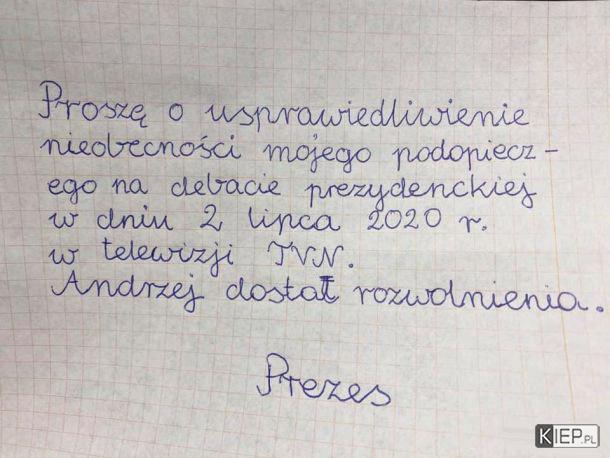 Proszę o usprawiedliwienie
nieobecności mojego podopiecz-
ego na debacie prezydenckiej
w dniu 2 lipca 2020 r.
w telewizji TVN.
Andrzej dostał rozwolnienia.
Prezes
KIEP.PL